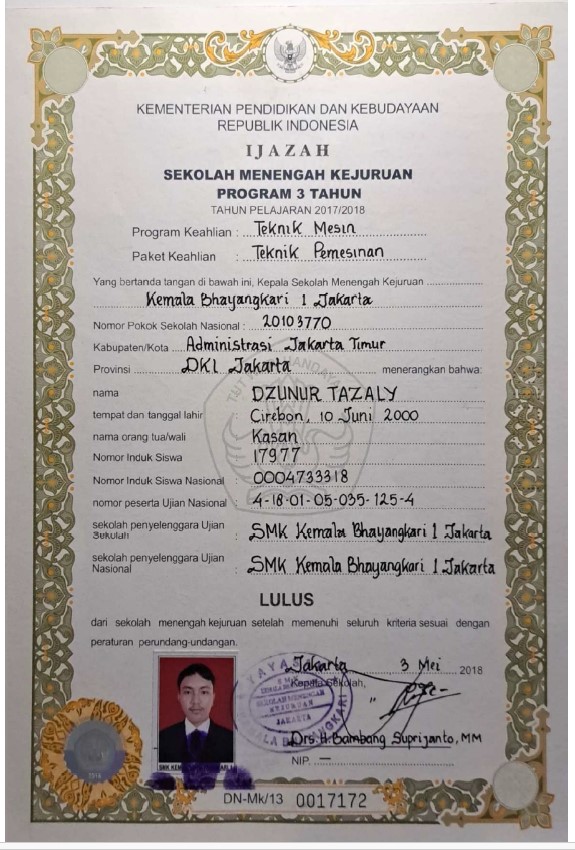 KEMENTERIAN PENDIDIKAN DAN KEBUDAYAAN
REPUBLIK INDONESIA
IJAZAH
SEKOLAH MENENGAH KEJURUAN
PROGRAM 3 TAHUN
TAHUN PELAJARAN 2017/2018
Program Keahlian : Teknik Mesin
Paket Keahlian : Teknik Pemesinan
Yang bertanda tangan di bawah ini, Kepala Sekolah Menengah Kejuruan
Kemala Bhayangkari 1 Jakarta
Nomor Pokok Sekolah Nasional : 20103770
Kabupaten/Kota Administrasi Jakarta Timur
Provinsi DKI Jakarta menerangkan bahwa:
nama : DZUNUR TAZALY
tempat dan tanggal lahir : Cirebon, 10 Juni 2000
nama orang tua/wali : Kasan
Nomor Induk Siswa : 17977
Nomor Induk Siswa Nasional : 0004733318
nomor peserta Ujian Nasional : 4-18-01-05-035-125-4
sekolah penyelenggara Ujian
Sekolah : SMK Kemala Bhayangkari 1 Jakarta
sekolah penyelenggara Ujian
Nasional : SMK Kemala Bhayangkari 1 Jakarta
LULUS
dari sekolah menengah kejuruan setelah memenuhi seluruh kriteria sesuai dengan
peraturan perundang-undangan.
Jakarta 3 Mei 2018
Kepala Sekolah,
YAYAS
SMK
SEKOLAH MENENGAH
KEJURUAN
JAKARTA
KEMALA BHAYANGKARI
Drs. H. Bambang Suprijanto, MM
NIP. —
DN-Mk/13 0017172